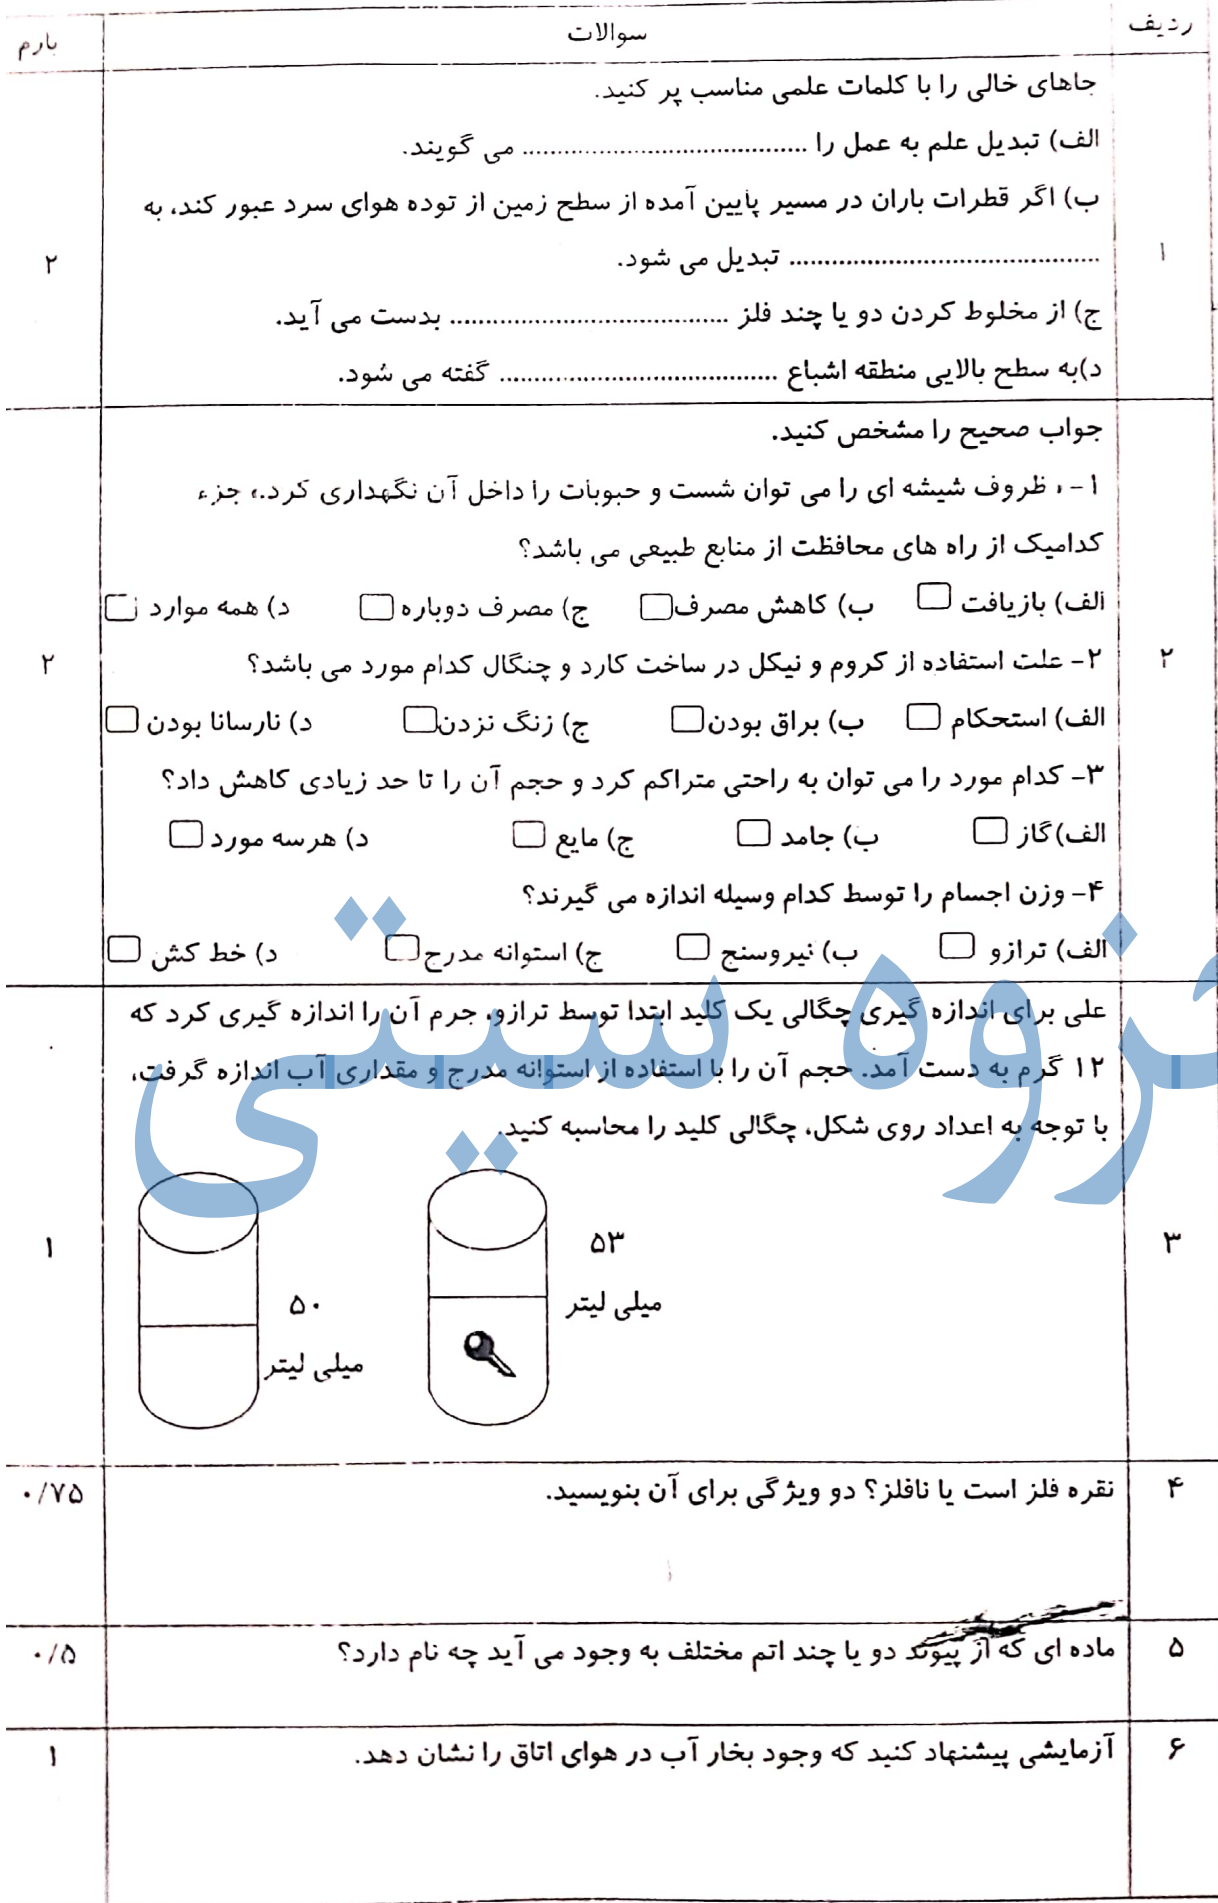 ردیف سوالات بارم
جاهای خالی را با کلمات علمی مناسب پر کنید.
الف) تبدیل علم به عمل را ........................................ می گویند.
ب) اگر قطرات باران در مسیر پایین آمده از سطح زمین از توده هوای سرد عبور کند، به
........................................ تبدیل می شود.
۱ ۲
ج) از مخلوط کردن دو یا چند فلز ........................................ بدست می آید.
د)به سطح بالایی منطقه اشباع ........................................ گفته می شود.
جواب صحیح را مشخص کنید.
۱- ، ظروف شیشه ای را می توان شست و حبوبات را داخل آن نگهداری کرد.، جزء
کدامیک از راه های محافظت از منابع طبیعی می باشد؟
الف) بازیافت ب) کاهش مصرف ج) مصرف دوباره د) همه موارد
۲ ۲- علت استفاده از کروم و نیکل در ساخت کارد و چنگال کدام مورد می باشد؟ ۲
الف) استحکام ب) براق بودن ج) زنگ نزدن د) نارسانا بودن
۳- کدام مورد را می توان به راحتی متراکم کرد و حجم آن را تا حد زیادی کاهش داد؟
الف) گاز ب) جامد ج) مایع د) هرسه مورد
۴- وزن اجسام را توسط کدام وسیله اندازه می گیرند؟
الف) ترازو ب) نیروسنج ج) استوانه مدرج د) خط کش
علی برای اندازه گیری چگالی یک کلید ابتدا توسط ترازو، جرم آن را اندازه گیری کرد که
۱۲ گرم به دست آمد. حجم آن را با استفاده از استوانه مدرج و مقداری آب اندازه گرفت،
با توجه به اعداد روی شکل، چگالی کلید را محاسبه کنید.
جزوه سیتی
۳ ۵۳ ۱
میلی لیتر ۵۰
میلی لیتر
۴ نقره فلز است یا نافلز؟ دو ویژگی برای آن بنویسید. ۰/۷۵
۵ ماده ای که از پیوند دو یا چند اتم مختلف به وجود می آید چه نام دارد؟ ۰/۵
۶ آزمایشی پیشنهاد کنید که وجود بخار آب در هوای اتاق را نشان دهد. ۱